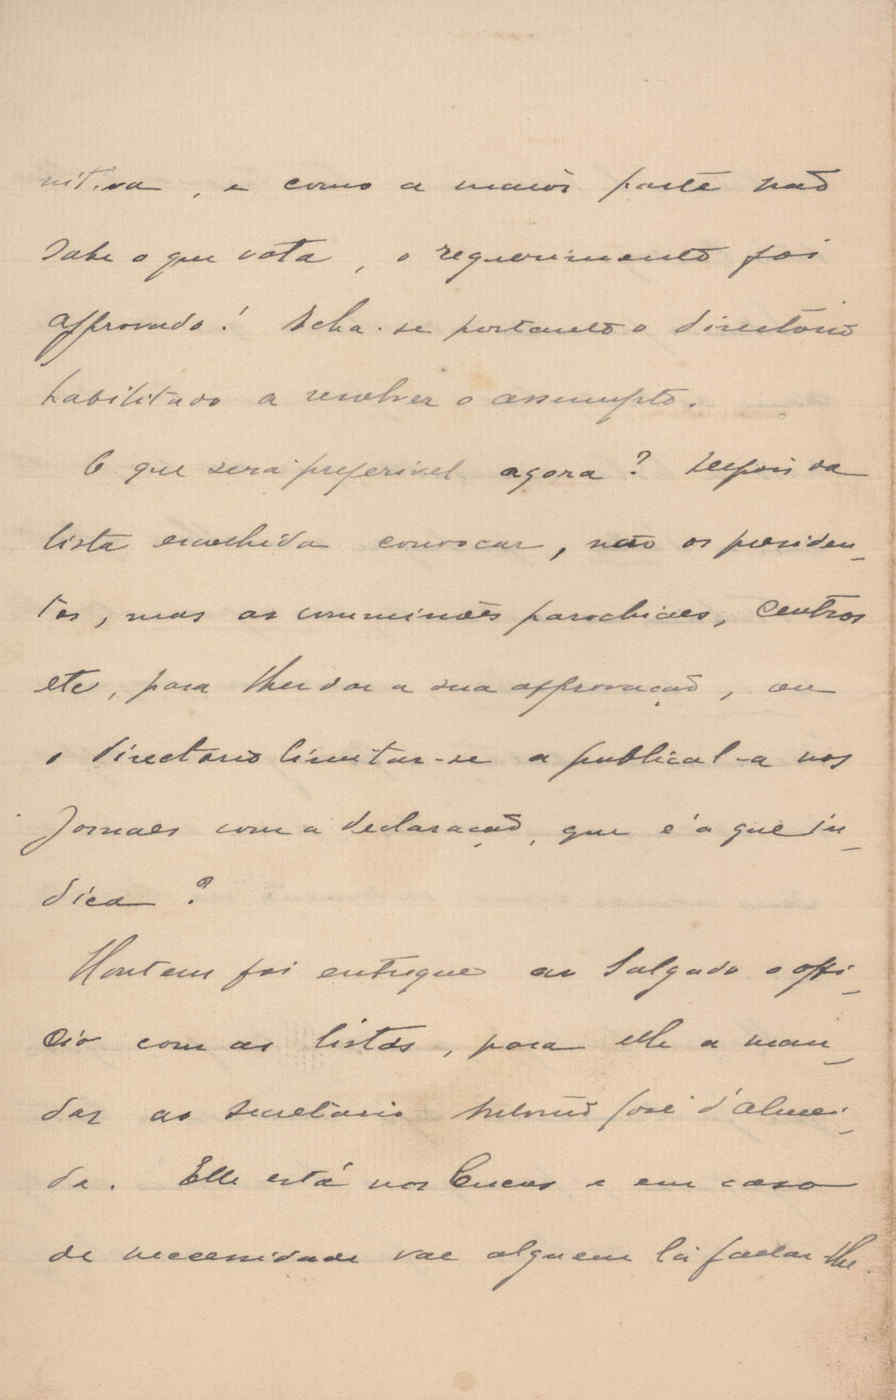 nitiva, e como a maiór parte não
sabe o que vota, o requerimento foi
approvado! Acha-se portanto o directorio
habilitado a resolver o assumpto.
O que será preferivel agora? Depois da
lista escolhida convocar, não os presiden-
tes, mas as commissões parochiaes, Centros
etc, para lhes dar a sua approvação, ou
o directorio limitar-se a publical-a nos
Jornaes com a declaração, que é a que in-
dica?
Hontem foi entregue ao Salgado o offi-
cio com as listas, para elle a man-
dar ao secretario Antonio José d'Almei-
da. Elle está nos Cucos e em caso
de necessidade vae alguem lá fallar lhe.